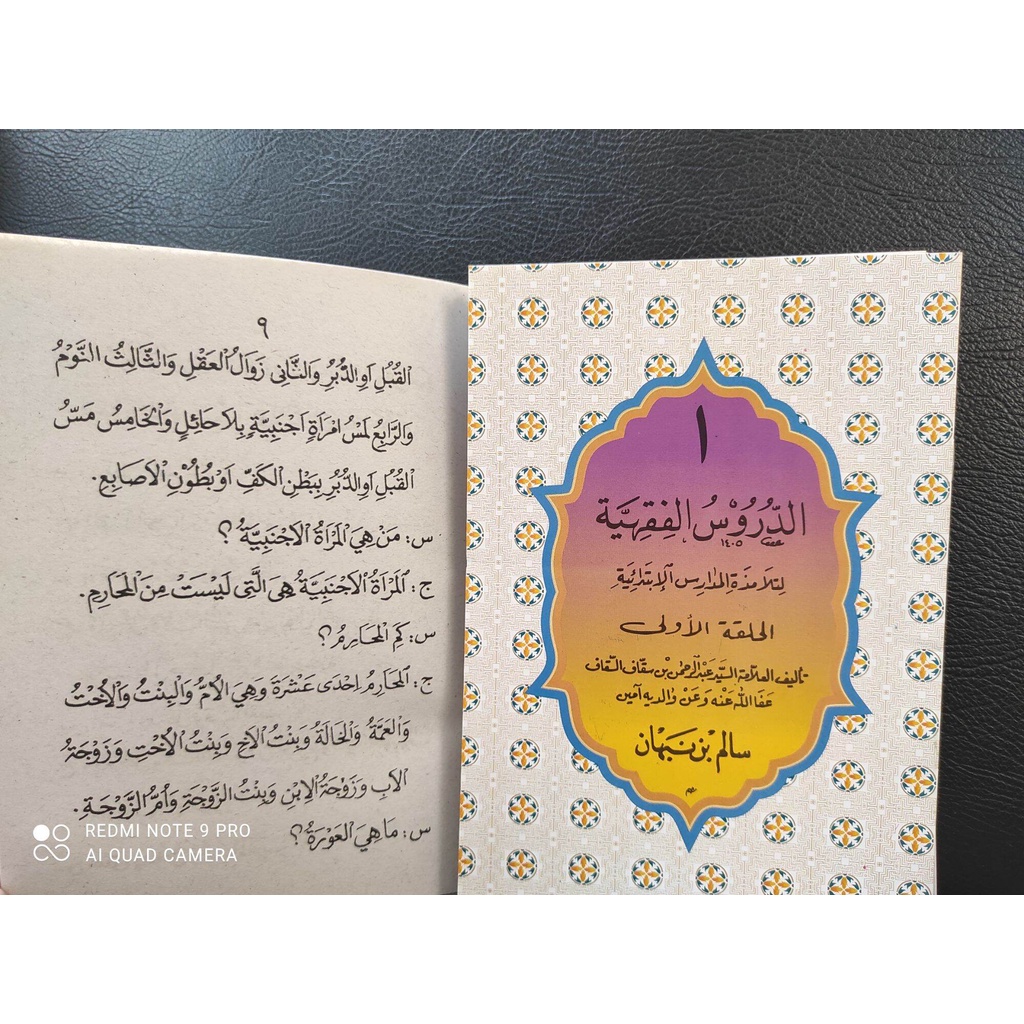 ٩
القُبُلِ اَوِ الدُّبُرِ وَالثَّانِى زَوَالُ العَقْلِ وَالثَّالِثُ النَّوْمُ
وَالرَّابِعُ لَمْسُ امْرَأَةٍ اَجْنَبِيَّةٍ بِلاَ حَائِلٍ وَالْخَامِسُ مَسُّ
القُبُلِ اَوِ الدُّبُرِ بِبَطْنِ الكَفِّ اَوْ بُطُوْنِ الْاَصَابِعِ.
س: مَنْ هِيَ الْمَرْاَةُ الْاَجْنَبِيَّةُ؟
ج: اَلْمَرْاَةُ الْاَجْنَبِيَّةُ هِيَ الَّتِى لَيْسَتْ مِنَ الْمَحَارِمِ.
س: كَمِ الْمَحَارِمُ؟
ج: اَلْمَحَارِمُ اِحْدَى عَشْرَةَ وَهِيَ الْاُمُّ وَالْبِنْتُ وَالْاُخْتُ
وَالْعَمَّةُ وَالْخَالَةُ وَبِنْتُ الْاَخِ وَبِنْتُ الْاُخْتِ وَزَوْجَةُ
الْاَبِ وَزَوْجَةُ الْاِبْنِ وَبِنْتُ الزَّوْجَةِ وَاُمُّ الزَّوْجَةِ.
س: مَا هِيَ الْعَوْرَةُ؟
١
الدُّرُوْسُ الفِقْهِيَّة
١٤٠٥
لتلامذة المدارس الإبتدائية
الحلقة الأولى
تأليف العلامة السيد عبد الرحمن بن سقاف السقاف
عفا الله عنه وعن والديه آمين
سالم بن نبهان
REDMI NOTE 9 PRO
AI QUAD CAMERA